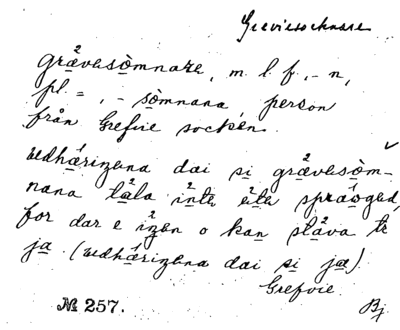 Greviesocknare
grävesòmnare, m. l. f., -n,
pl. =, -sòmnana, person
från Grefvie socken.
vedhärizena dai si grävesòm-
nana tåla inte ete språoged,
for dar e izen o kanståva te
ja. (vedhärizena dai si ja)
Grefvie
№ 257. Bj.